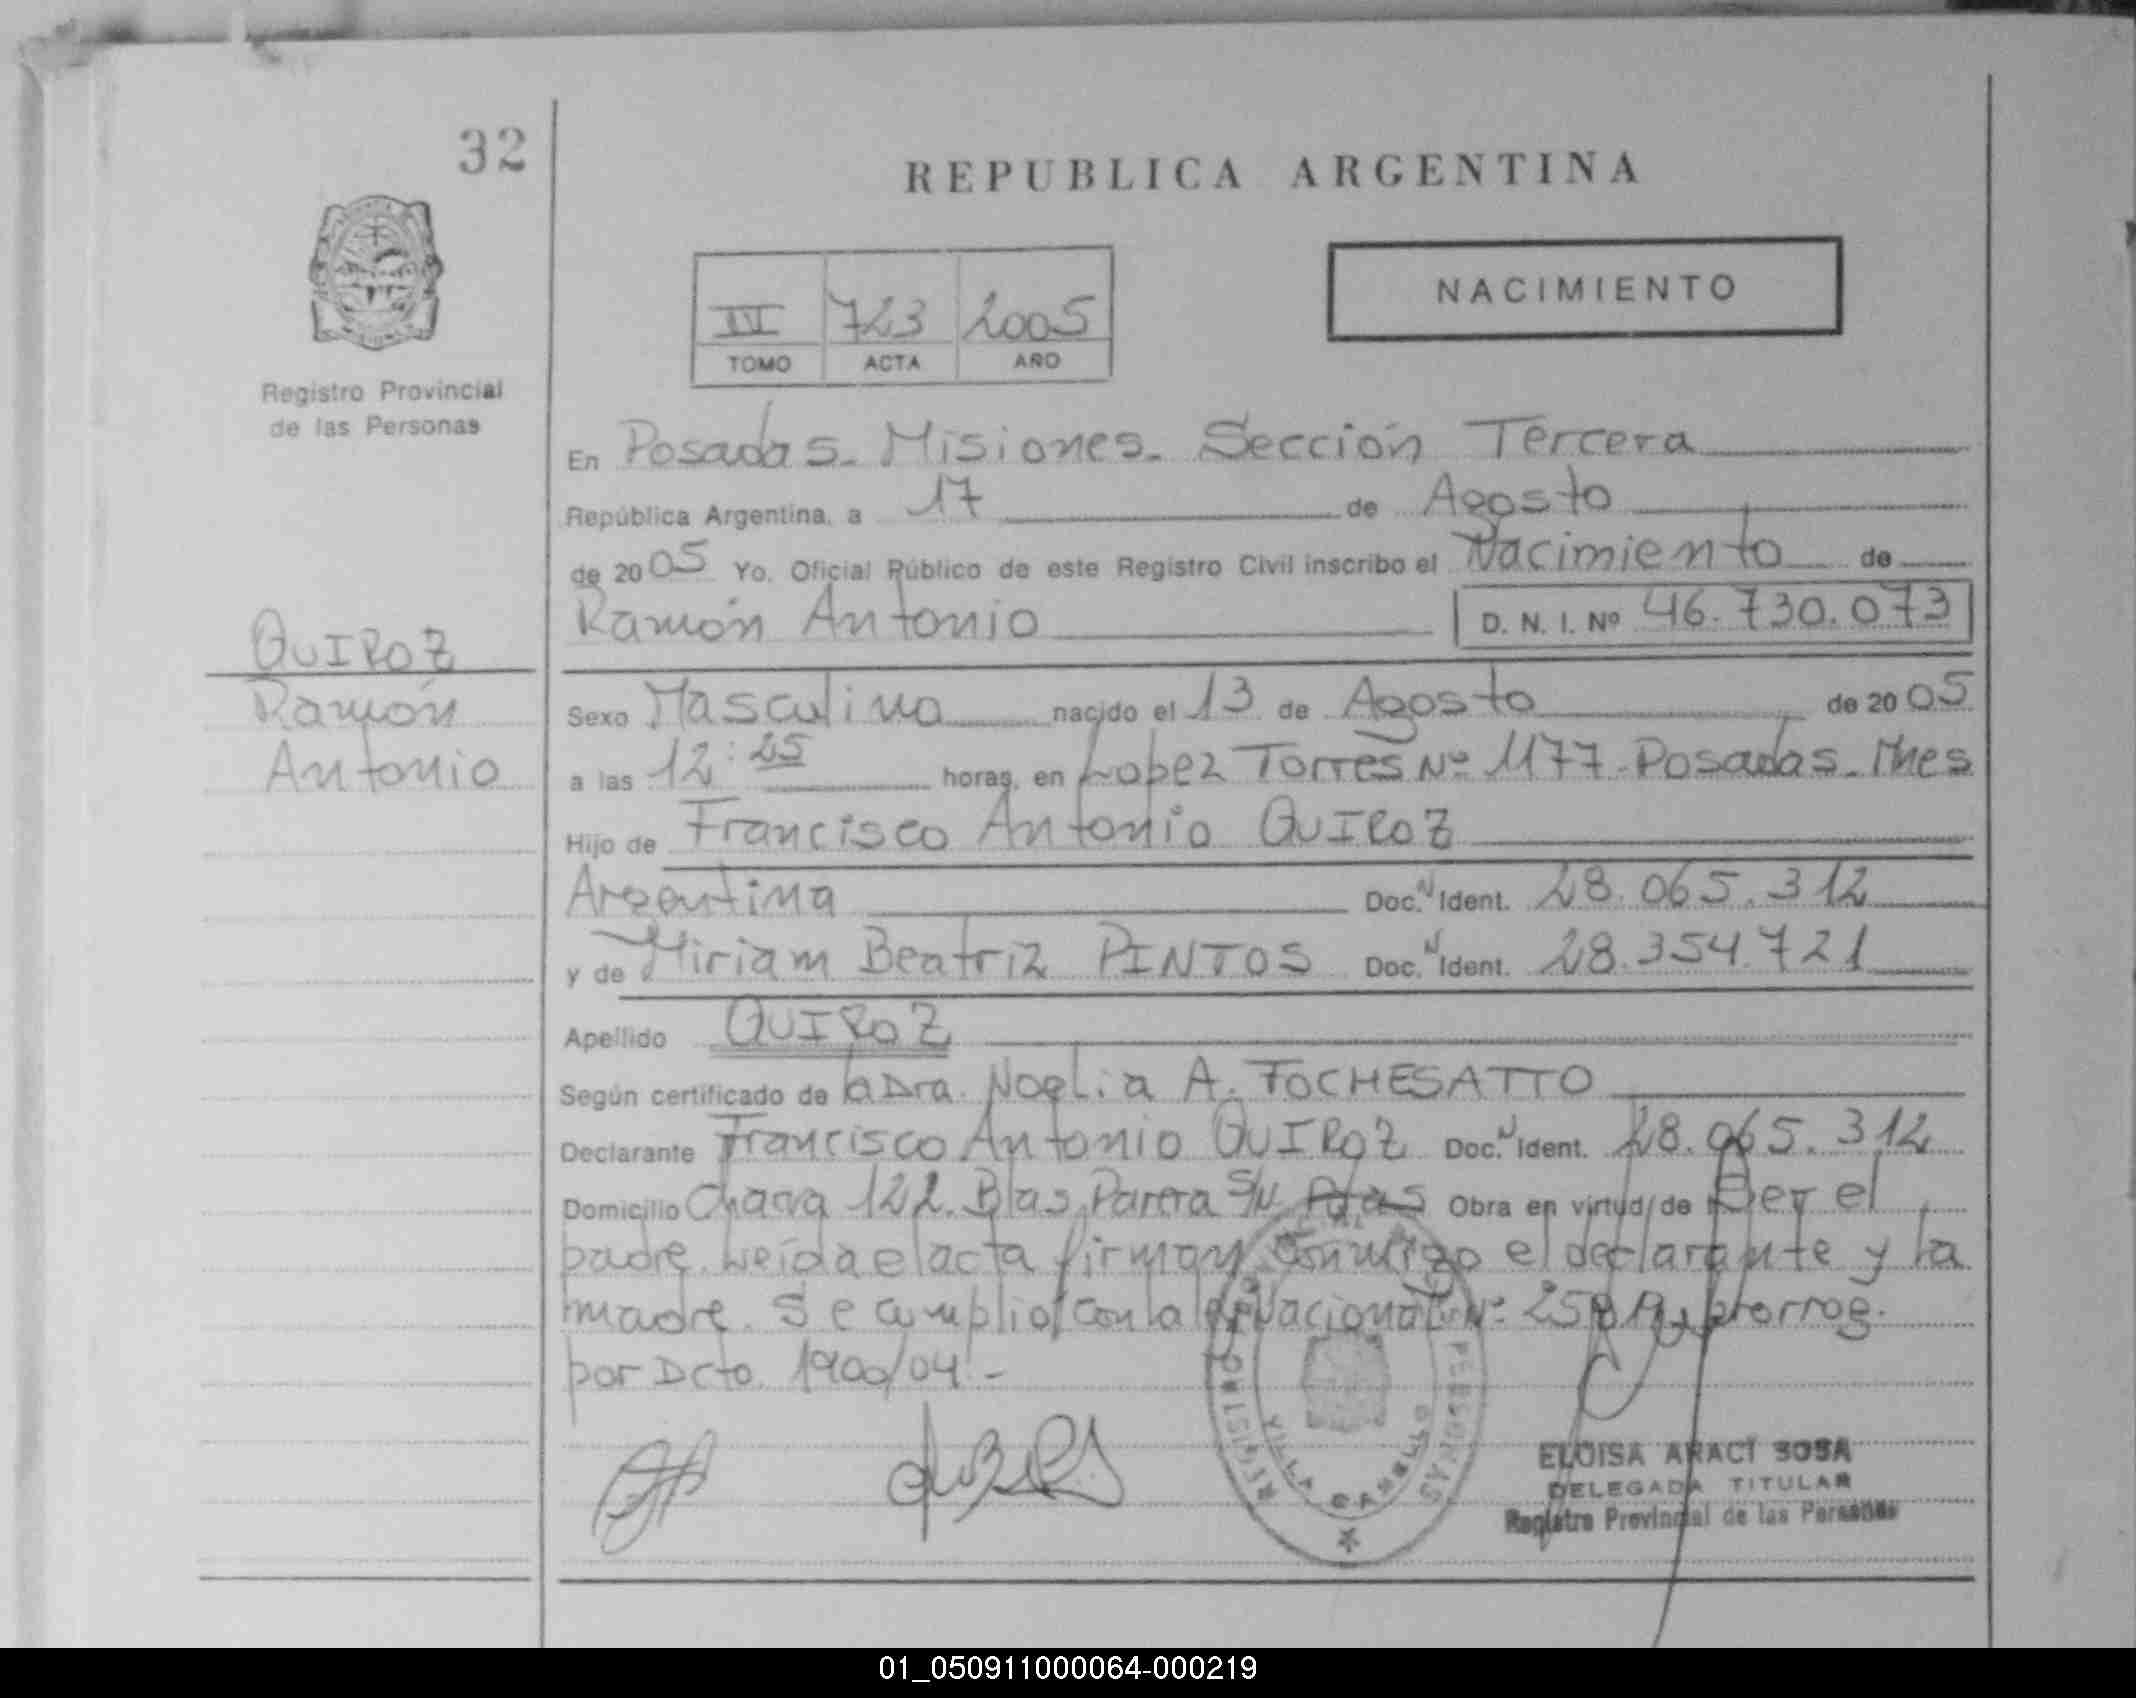 32
REPUBLICA ARGENTINA
NACIMIENTO
IV 723 2005
TOMO ACTA AÑO
Registro Provincial
de las Personas
En Posadas - Misiones - Sección Tercera
República Argentina, a 17 de Agosto
de 2005 Yo, Oficial Público de este Registro Civil inscribo el Nacimiento de
Ramón Antonio D. N. I. Nº 46.730.073
QUIROZ
Ramón
Antonio
Sexo Masculino nacido el 13 de Agosto de 2005
a las 12:25 horas, en Lopez Torres Nº 1177 - Posadas - Mnes
Hijo de Francisco Antonio QUIROZ
Argentina Doc. N Ident. 28.065.312
y de Miriam Beatriz PINTOS Doc. N Ident. 28.354.721
Apellido QUIROZ
Según certificado de la Dra. Noelia A. FOCHESATTO
Declarante Francisco Antonio QUIROZ Doc. N Ident. 28.065.312
Domicilio Chacra 122. Blas Parera S/N Pdas Obra en virtud de Ser el
padre. Leída el acta firman conmigo el declarante y la
madre. Se cumplio con la Nacional Nº
por Dcto. 1900/04 -
REGISTRO PERSONAS
VILLA CABELLO
ELOISA ARACI SOSA
DELEGADA TITULAR
Registro Provincial de las Personas
01_050911000064-000219